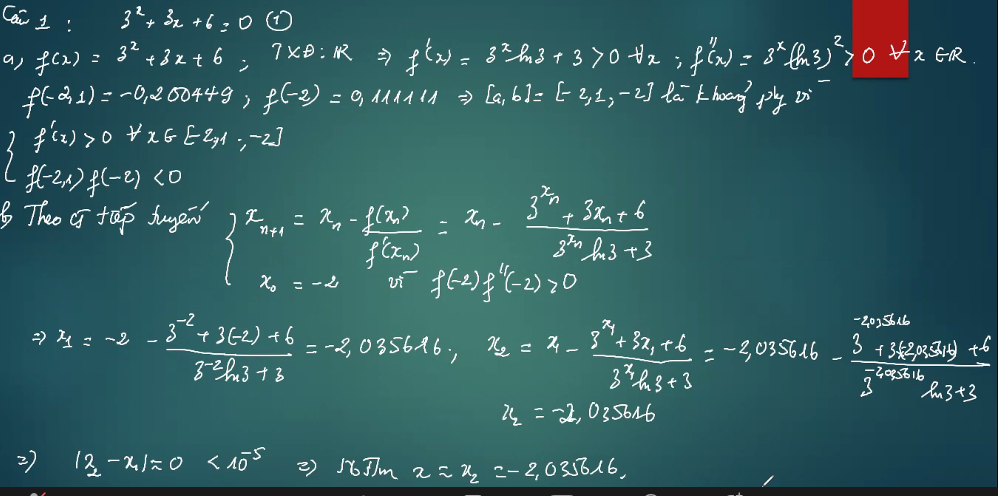 Câu 1 : 3² + 3x + 6 = 0 ①
a, f(x) = 3² + 3x + 6 ; TXĐ: ℝ ⇒ f'(x) = 3ˣ ln3 + 3 > 0 ∀x ; f''(x) = 3ˣ (ln3)² > 0 ∀x ∈ ℝ.
f(-2,1) = -0,200449 ; f(-2) = 0,111111 ⇒ [a,b] = [-2,1 ; -2] là khoảng ply vì
{ f'(x) > 0 ∀x ∈ [-2,1 ; -2]
f(-2,1) f(-2) < 0
b, Theo ct tiếp tuyến { xₙ₊₁ = xₙ - f(xₙ)/f'(xₙ) = xₙ - (3^(xₙ) + 3xₙ + 6)/(3^(xₙ) ln3 + 3)
x₀ = -2 vì f(-2) f''(-2) > 0
⇒ x₁ = -2 - (3⁻² + 3(-2) + 6)/(3⁻² ln3 + 3) = -2,035616 ; x₂ = x₁ - (3^(x₁) + 3x₁ + 6)/(3^(x₁) ln3 + 3) = -2,035616 - (3^(-2,035616) + 3(-2,035616) + 6)/(3^(-2,035616) ln3 + 3)
x₂ = -2,035616
⇒) |x₂ - x₁| ≈ 0 < 10⁻⁵ ⇒) x ≈ x₂ = -2,035616.